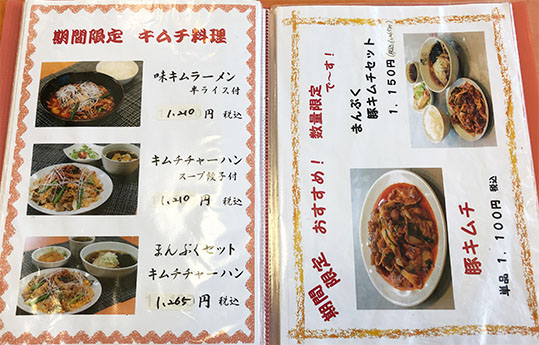 期間限定 キムチ料理
味キムラーメン
半ライス付
1,210 円 税込
キムチチャーハン
スープ餃子付
1,210 円 税込
まんぷくセット
キムチチャーハン
1,265 円 税込
期間限定 おすすめ！ 数量限定
で〜す！
まんぷく
豚キムチセット
1，150円
豚キムチ
単品 1，100円 税込